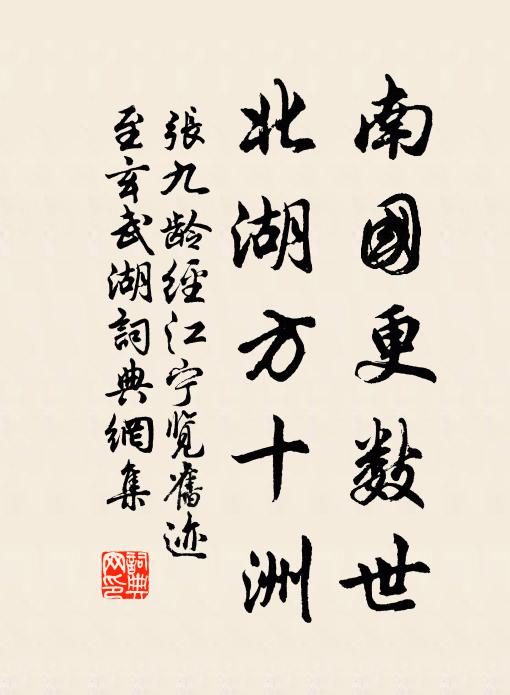 南國更數世
北湖方十洲
張九龄經江宁覽舊迹
至玄武湖詞典網集
詞典
网印